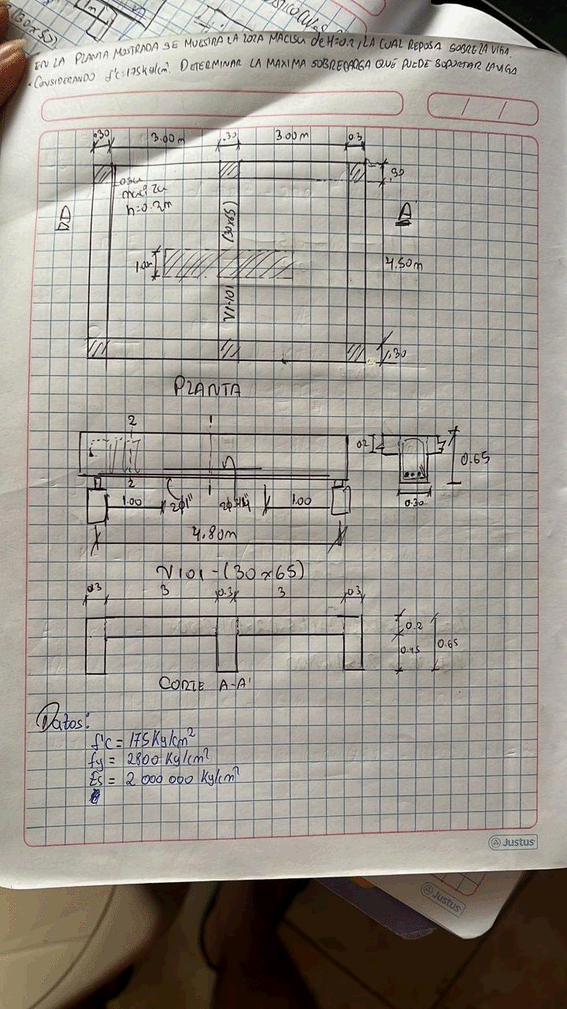 EN LA PLANTA MOSTRADA SE MUESTRA LA LOZA MACISA de H=0.2, LA CUAL REPOSA SOBRE LA VIGA.
• CONSIDERANDO f'c=175kg/cm². DETERMINAR LA MAXIMA SOBRECARGA QUE PUEDE SOPORTAR LA VIGA
/ /
.30 3.00m .30 3.00m 0.3
.30
Losa
maciza
h=0.2m
(30x65)
A
4.50m
1.00
V1-101
.30
PLANTA
2 1
0.2
0.65
2 1
1.00 2φ1" 1.00
0.30
4.80m
V101-(30x65)
0.3 3 0.3 3 0.3
0.2
0.45 0.65
CORTE A-A'
Datos:
f'c = 175 Kg/cm²
fy = 2800 Kg/cm²
Es = 2 000 000 Kg/cm²
Justus
Justus